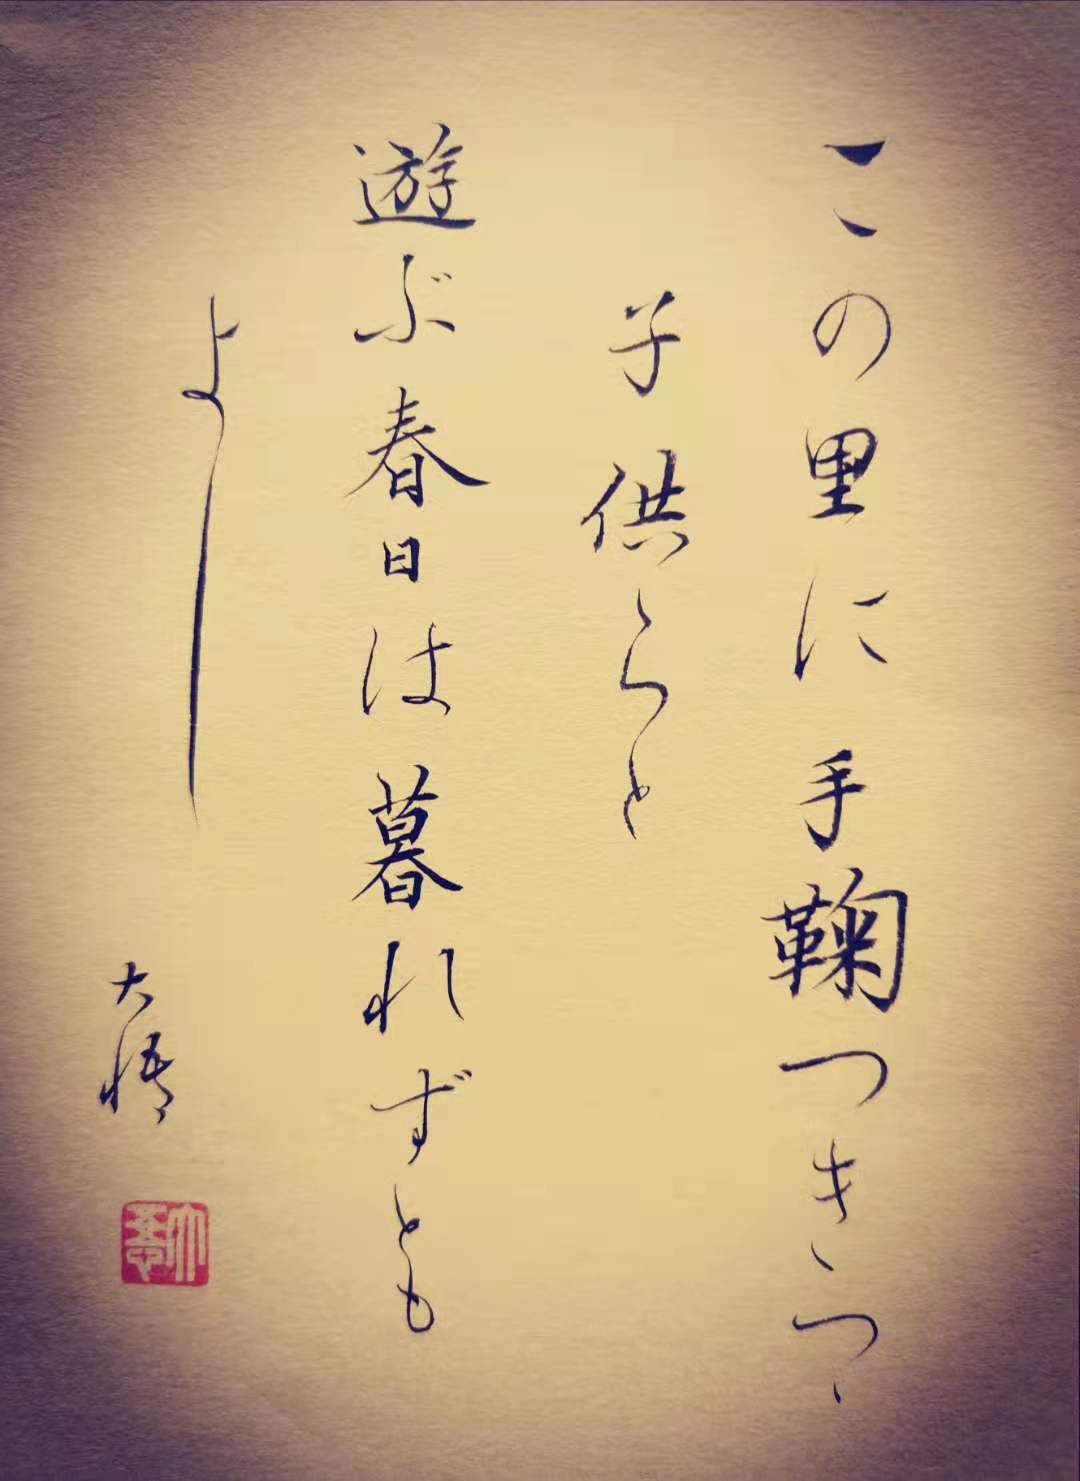 この里に手鞠つきつゝ
子供らと
遊ぶ春日は暮れずとも
よし
大悟
大悟